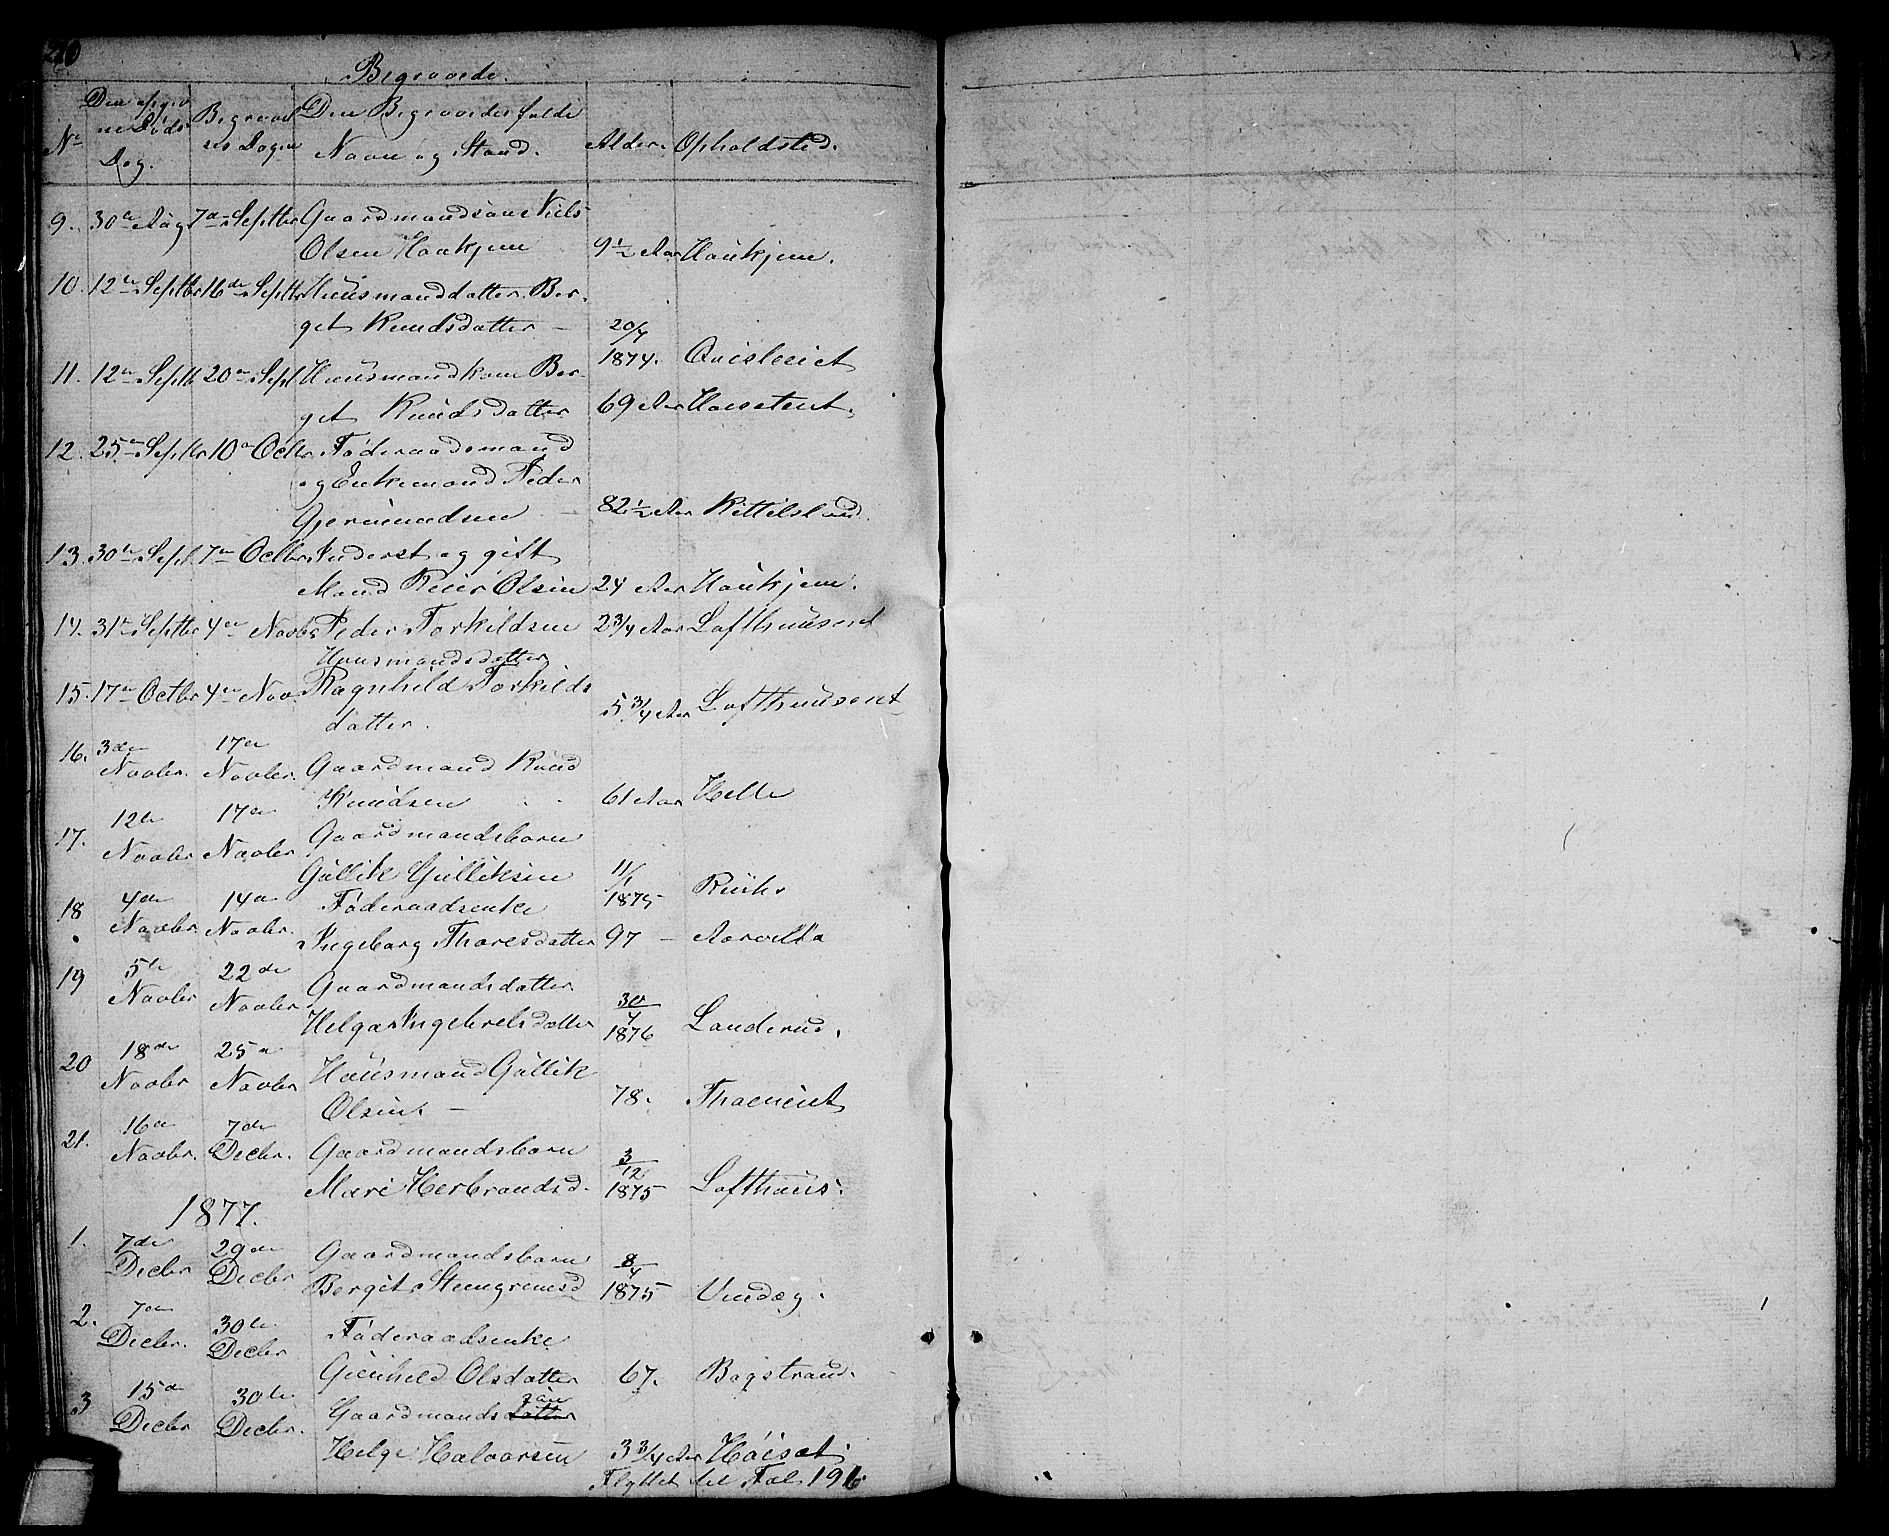 Begravede.
No Den opgivne Døds Dag. Begravelses Dagen Den Begravedes fulde Navn og Stand. Alder. Opholdsted.
9. 30te Aug 7de Septbr Gaardmandsøn Niels
Olsen Haukjem 9 1/2 Aar Haukjem.
10. 12te Septbr 16de Septbr Huusmanddatter Ber-
get Knudsdatter – 20/7
1874. Qvisleeiet
11. 12te Septb 20de Sept Huusmandkone Ber-
get Knudsdatter 69 Aar
12. 25de Septbr 10de Octbr Føderaadsmand
og Enkemand Peder
Gjermundsen – 82 1/2 Aar Kittilsland.
13. 30te Sept 7de Octbr Inderst og gift
Mand Peder Olsen 24 Aar Haukjem.
14. 31te Septbr 4de Novbr Peder Torkildsen 2 3/4 Aar Lofthuuseiet
Huusmandsdatter
15. 17de Octbr 4de Nov. Ragnhild Torkilds
datter. 5 3/4 Aar Lofthuuseiet
16. 3de Novbr. 17de Novbr. Gaardmand Knud
Knudsen 61 Aar Helle
17. 12te Novbr 17de Novbr Gaardmandsbarn
Gullik Gulliksen 11/1
1875
18 4de Novbr 14de Novbr. Føderaadsenke
Ingeborg Thoresdatter 97 –
19 5te Novbr 22de Novbr Gaardmandsdatter
Helga Ingebretsdatter 30/4
1876 Landerud.
20 18de Novbr 25de Novbr Huusmand Gullik
Olsen. – 78.
21. 16de Novbr. 7de Decbr. Gaardmandsbarn
Mari Herbrandsd. 3/12
1875 Lofthuus.
1877.
1. 7de Decbr 29de Decbr Gaardmandsbarn
Bergit Steingrimsd 8/4
1875
2. 7de Decbr. 30te Decbr Føderaadsenke
Gunhild Olsdatter 67. Bagstrand.
3 15de Decbr 30te Decbr. Gaardmandsdatter søn
Helge Halvorsen 3 3/4 Aar Høiset.
Flyttet til Fol. 196